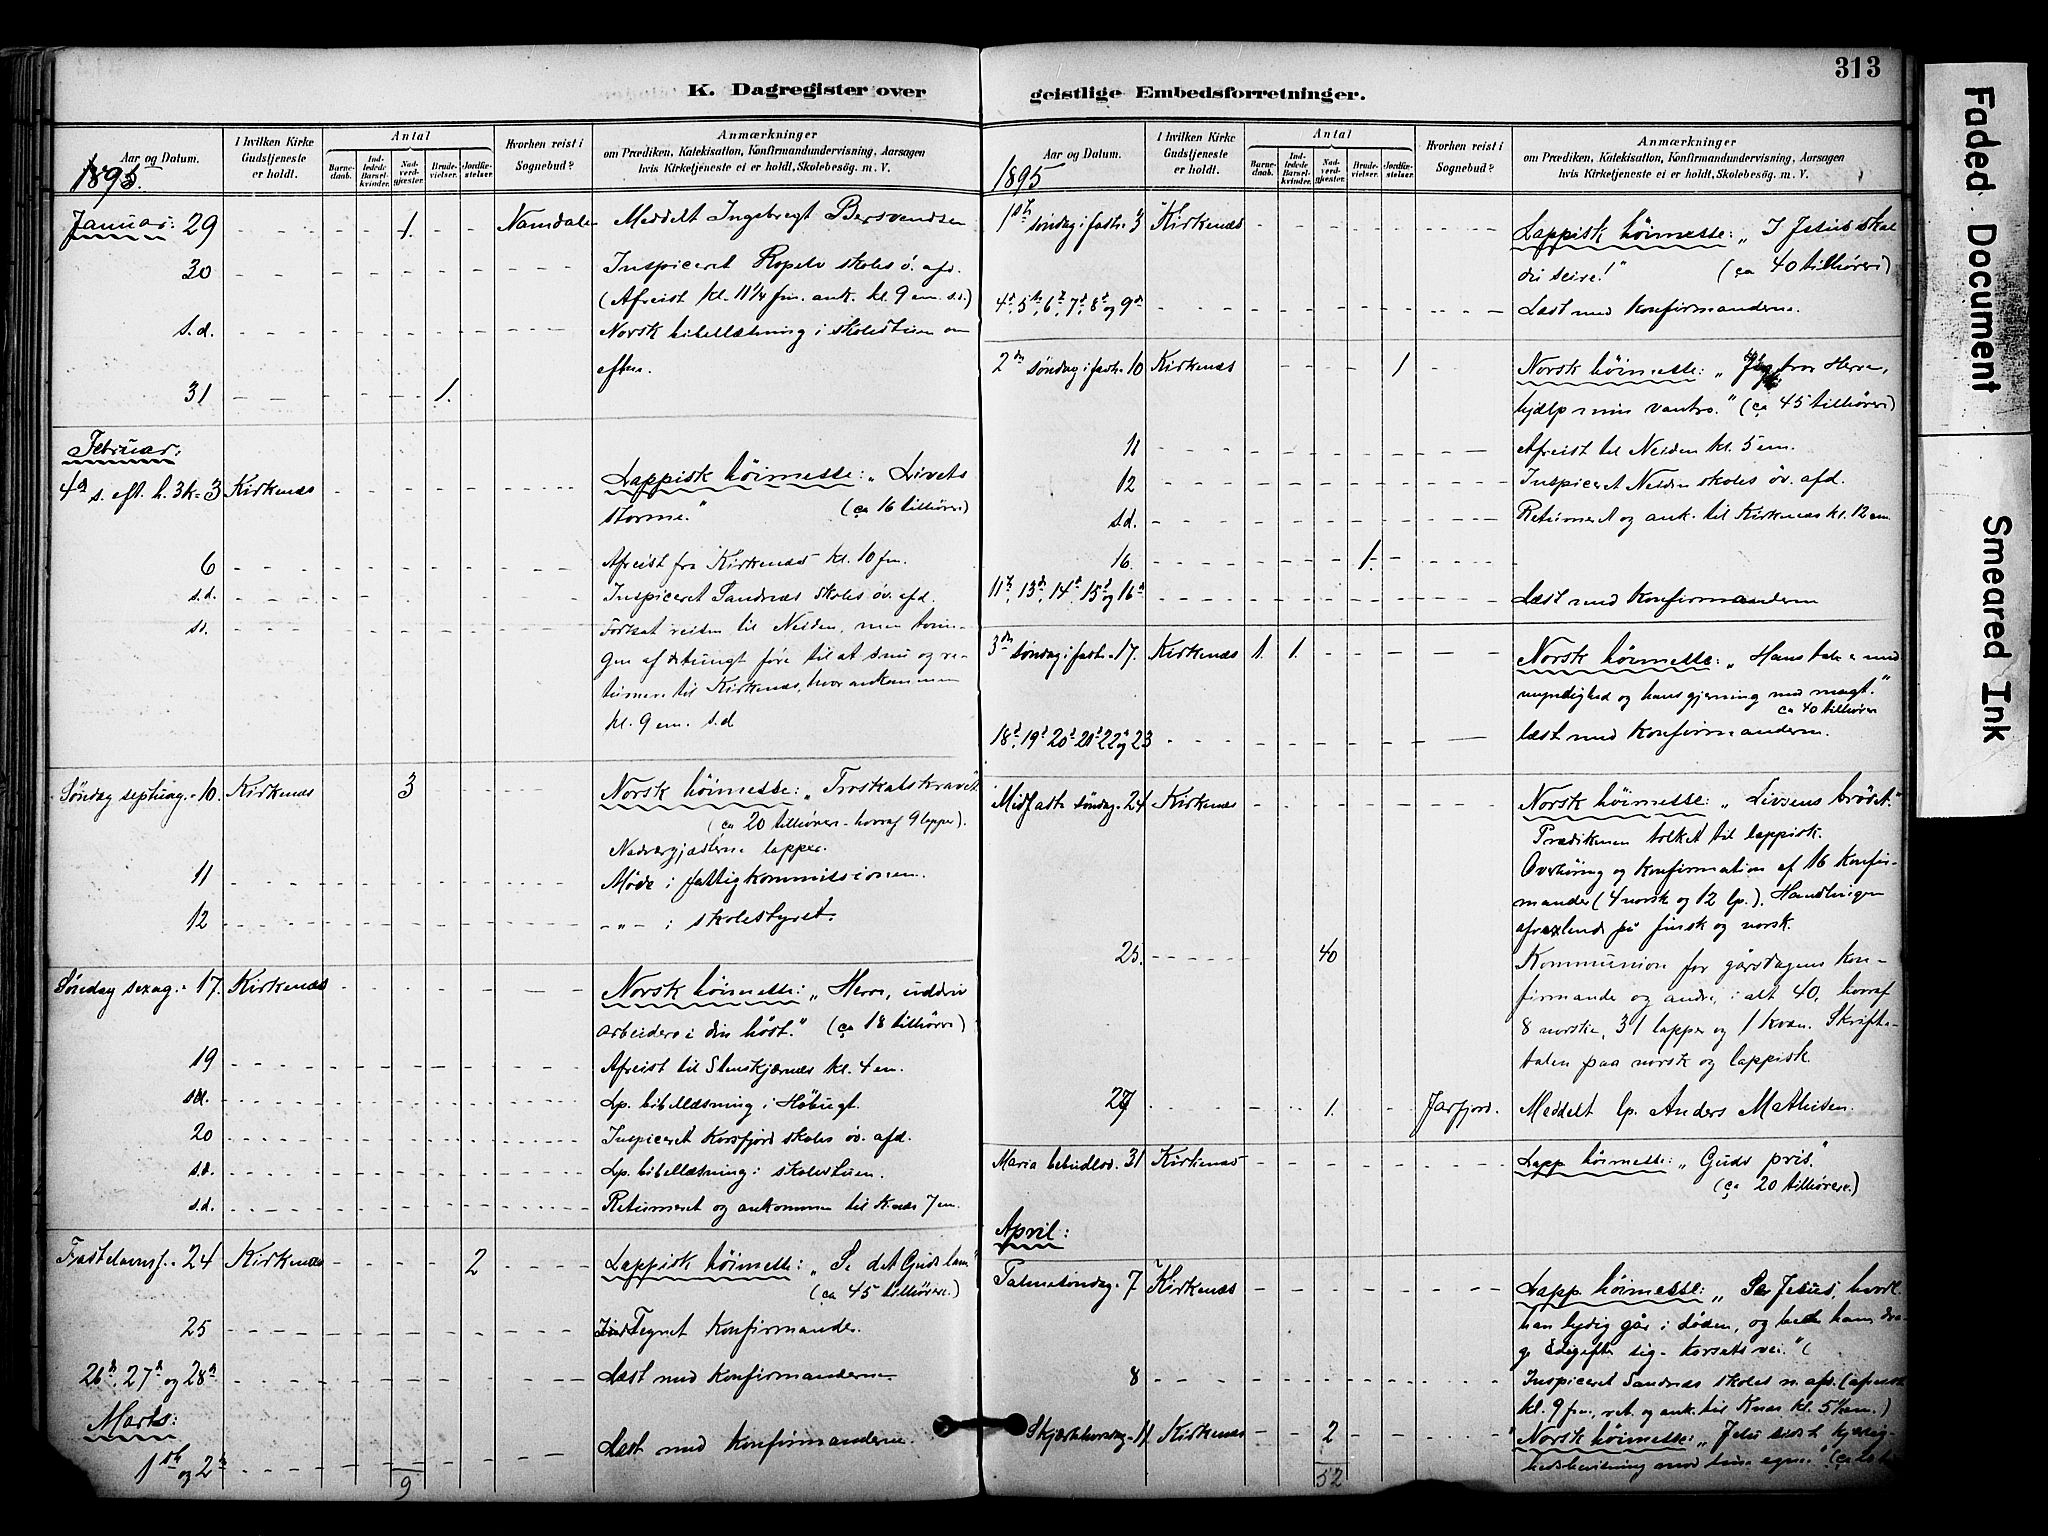 313
K. Dagregister over
geistlige Embedsforretninger.
Faded Document
Smeared Ink
Aar og Datum.
I hvilken Kirke Gudstjeneste er holdt.
Antal
Barne-daab.
Ind-ledede Barsel-kvinder.
Nad-verd-gjæster.
Brude-vielser.
Jordfæ-stelser.
Hvorhen reist i Sognebud?
Anmærkninger
om Prædiken, Katekisation, Konfirmandundervisning, Aarsagen
hvis Kirketjeneste ei er holdt, Skolebesög. m. V.
1895.
Januar: 29 1. Namdalen Meddelt Ingebregt Bersvendsen
30 Inspiceret Ropelv skoles ö. afd.
(Afreist kl. 11½ fm. ank. kl. 9 em. s.d.)
s.d. Norsk bibellæsning i skolestuen om
aften.
31 1.
Februar:
4de s. eft. h. 3k. 3 Kirkenæs Lappisk höimesse: "Livets
storme." (ca 16 tilhörere)
6 Afreist fra Kirkenæs kl. 10 fm.
s.d. Inspiceret Sandnæs skoles öv. afd.
s.d. Fortsat reisen til Neiden, men tvun-
gen af tungt före til at snu og re-
turnere til Kirkenæs, hvor ankommen
kl. 9 em. s.d
Söndag septuag. 10 Kirkenæs 3 Norsk höimesse: "Troskabskravet
(ca 20 tilhörere - hvoraf 9 lapper).
Nadvergjæsterne lapper.
11 Möde i fattigkommissionen.
12 - " - i skolestyret.
Söndag sexag. 17. Kirkenæs Norsk höimesse: "Herre, uddriv
arbeidere i din höst." (ca 18 tilhörere)
19 Afreist til Stenskjærnæs kl. 4 em.
s.d. Lp. bibellæsning i Höbugt.
20 Inspiceret Korsfjord skoles öv. afd.
s.d. Lp. bibellæsning i skolestuen.
s.d. Returneret og ankommen til K.næs 7 em.
Fastelavnss. 24 Kirkenæs 2 Lappisk höimesse: "Se det Guds lam"
(ca 45 tilhörere.)
25 Indtegnet konfirmander.
26de, 27de og 28de Læst med konfirmanderne
Marts:
1ste og 2den Læst med konfirmanderne.
9
Aar og Datum.
I hvilken Kirke Gudstjeneste er holdt.
Antal
Barne-daab.
Ind-ledede Barsel-kvinder.
Nad-verd-gjæster.
Brude-vielser.
Jordfæ-stelser.
Hvorhen reist i Sognebud?
Anmærkninger
om Prædiken, Katekisation, Konfirmandundervisning, Aarsagen
hvis Kirketjeneste ei er holdt, Skolebesög. m. V.
1895
1ste söndag i faste 3 Kirkenæs Lappisk höimesse: "I Jesus skal
du seire!" (ca 40 tilhörere)
4de, 5te, 6te, 7de, 8de og 9de Læst med konfirmanderne.
2den söndag i faste 10 Kirkenæs 1 Norsk höimesse: "Jeg tror Herre,
hjælp min vantro." (ca 45 tilhörere)
11 Afreist til Neiden kl. 5 em.
12 Inspiceret Neiden skoles öv. afd.
s.d. Returneret og ank. til Kirkenæs kl. 12 em.
16. 1.
11te, 13de, 14de, 15de og 16de Læst med konfirmanderne
3die söndag i faste 17. Kirkenæs 1. 1. Norsk höimesse: "Hans tale er med
myndighed og hans gjerning med magt."
ca 40 tilhörere
18de, 19de 20de 21de 22de og 23 læst med konfirmanderne.
Midfaste söndag 24 Kirkenæs Norsk höimesse: "Livsens bröd."
Prædikenen tolket til lappisk.
Overhöring og konfirmation af 16 konfir-
mander (4 norsk og 12 lp.). Handlingen
afvexlende på finsk og norsk.
25. 40 Kommunion for gårsdagens kon-
firmander og andre, i alt 40, hvoraf
8 norske, 31 lapper og 1 kvæn. Skrifte-
talen paa norsk og lappisk
27 1. Jarfjord. Meddelt lp. Anders Mathisen.
Maria bebudlse. 31 Kirkenæs Lapp höimesse: "Guds pris."
(ca 20 tilhörere.)
April:
Palmesöndag 7 Kirkenæs Lapp. höimesse: "Se Jesus, hvorl.
han lydig går i döden, og bed ham dra-
ge dig efter sig - korsets vei." (
8 Inspiceret Sandnæs skoles n. afd. (afreist
kl. 9 fm., ret. og ank. til Knæs kl. 5 em.)
Skjærthorsdag 11 Kirkenæs 2 Norsk höimesse: "Jesu sidste kjærlig-
hedsbevisning mod sine egne." (ca 20
52